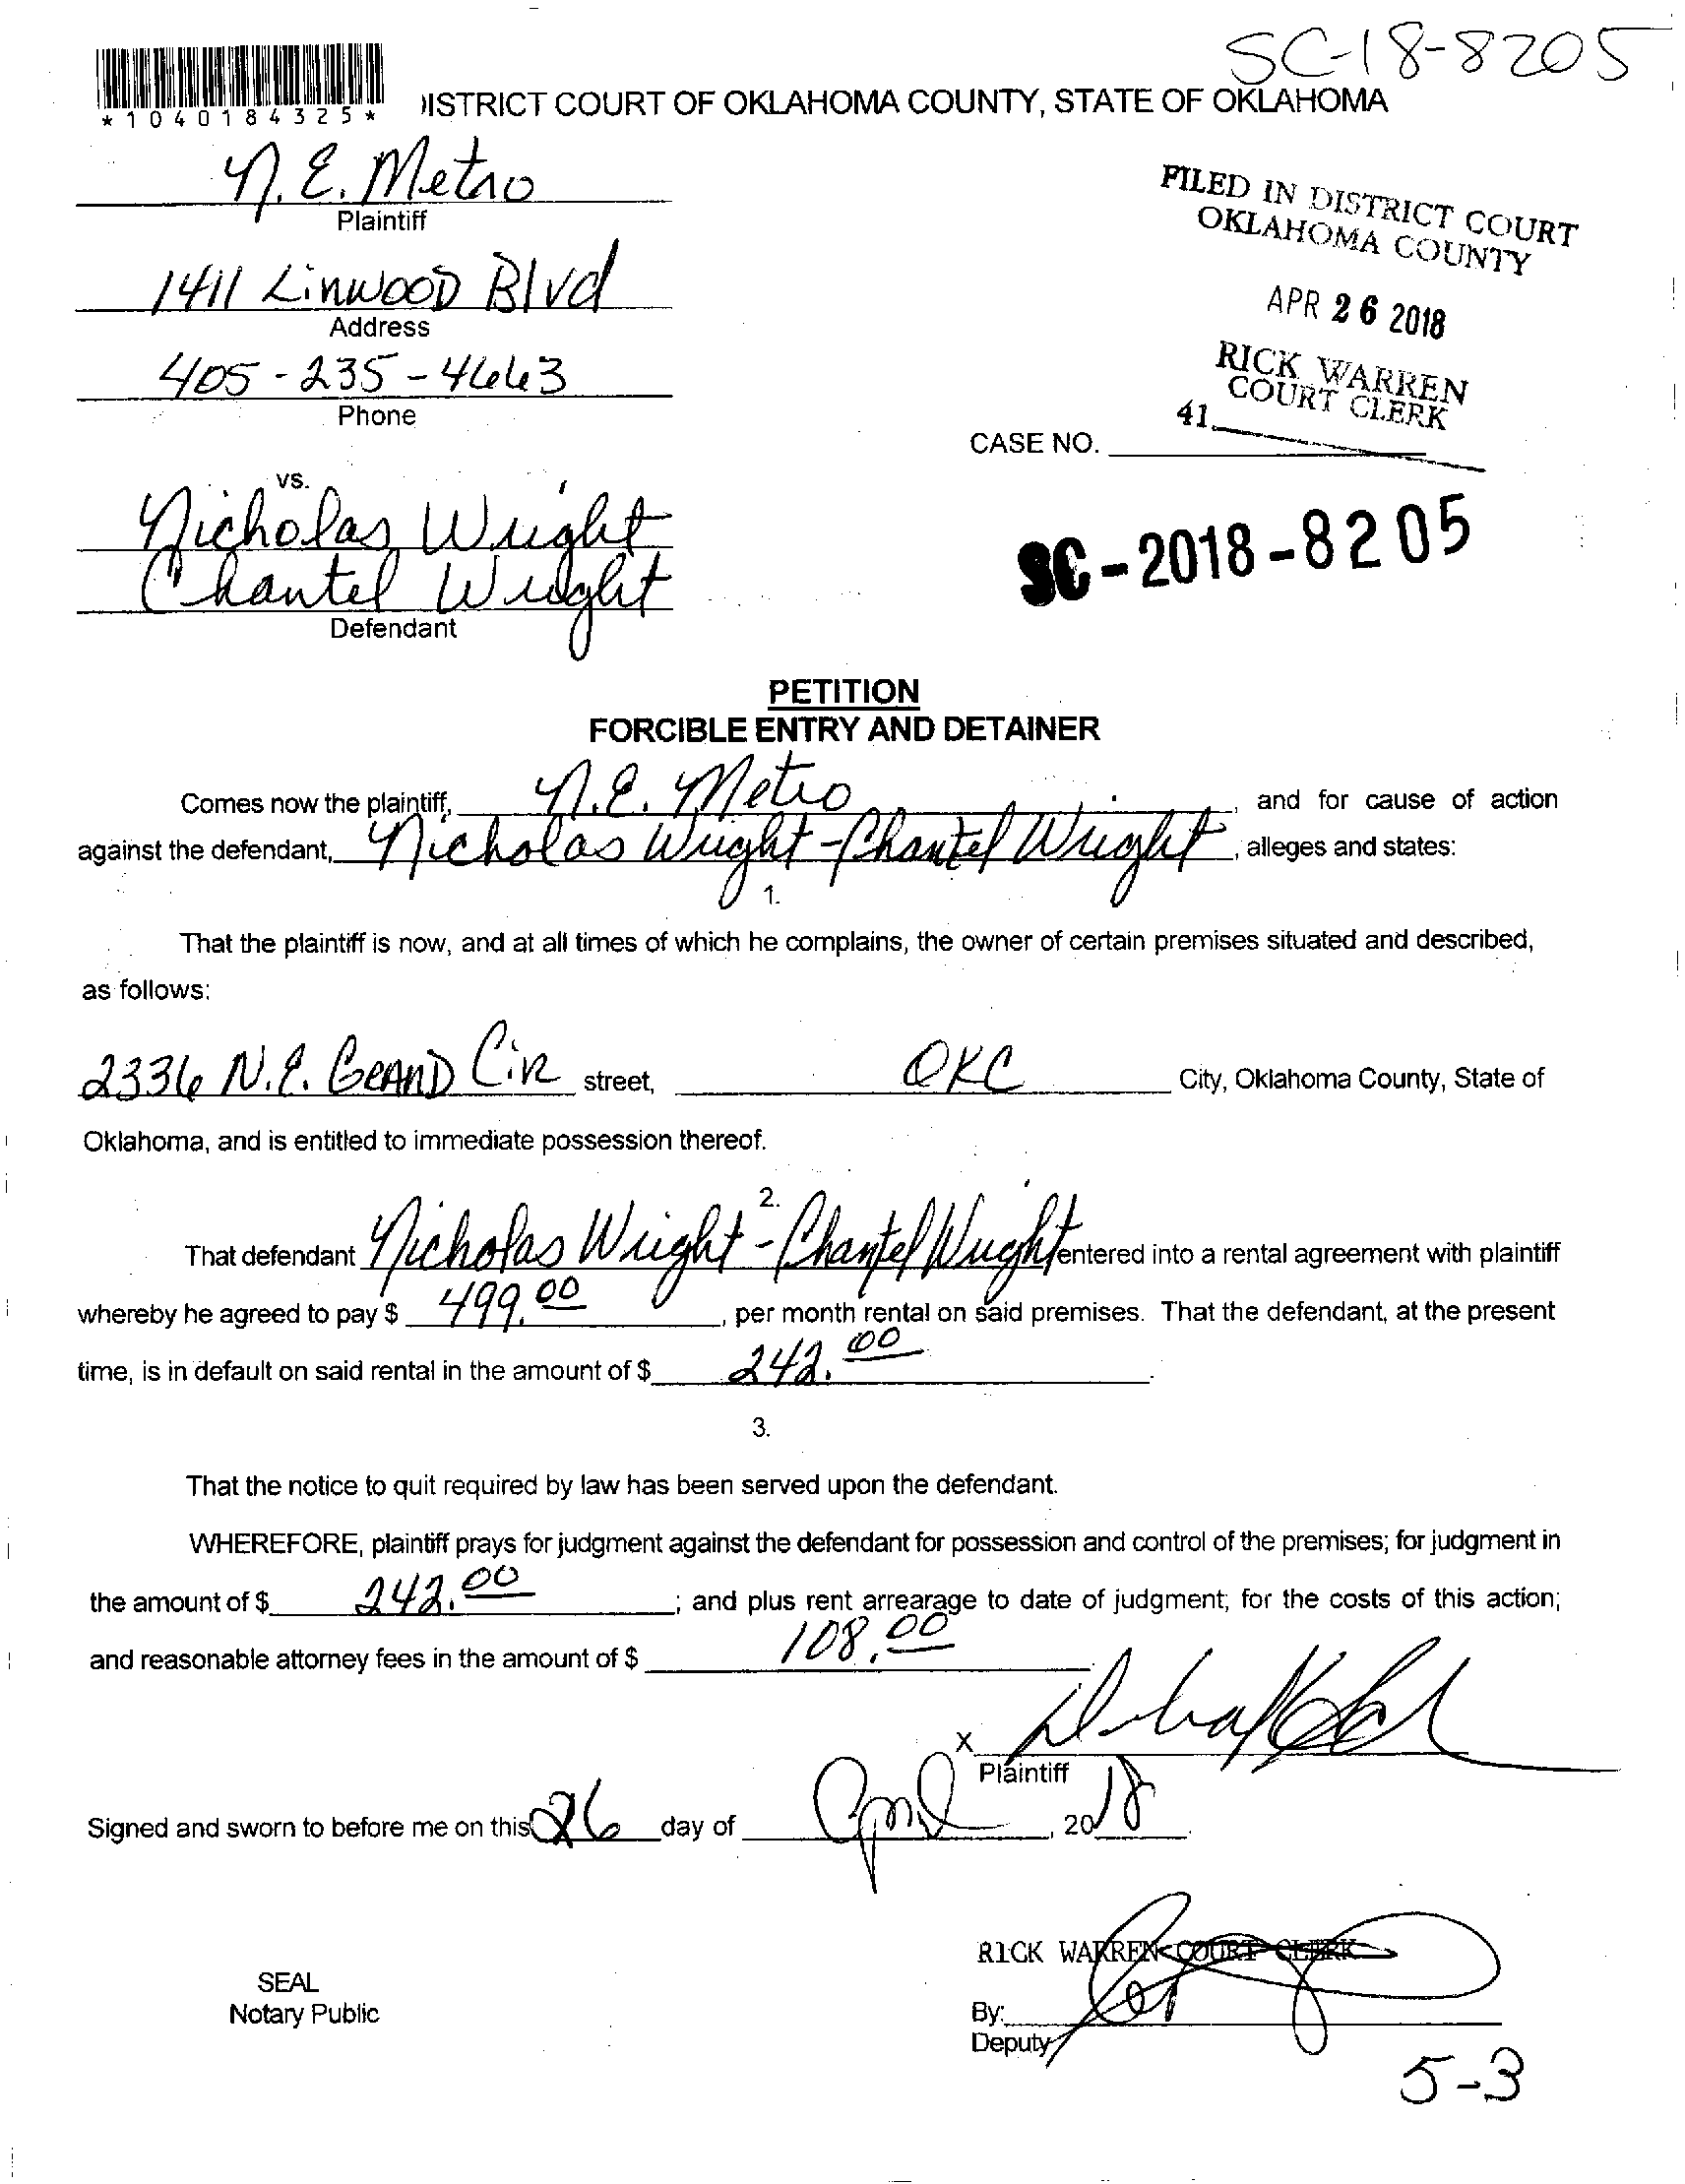 SC-18-8205
*1040184325*
ISTRICT COURT OF OKLAHOMA COUNTY, STATE OF OKLAHOMA
N.E. Metro
Plaintiff
FILED IN DISTRICT COURT
OKLAHOMA COUNTY
1411 LinwooD Blvd
Address
APR 26 2018
405-235-4663
Phone
RICK WARREN
COURT CLERK
41
CASE NO.
vs.
Nicholas Wright
Chantel Wright
Defendant
SC-2018-8205
PETITION
FORCIBLE ENTRY AND DETAINER
Comes now the plaintiff, N.E. Metro, and for cause of action
against the defendant, Nicholas Wright - Chantel Wright, alleges and states:
1.
That the plaintiff is now, and at all times of which he complains, the owner of certain premises situated and described,
as follows:
2336 N.E. GRAND CiR street, OKC City, Oklahoma County, State of
Oklahoma, and is entitled to immediate possession thereof.
2.
That defendant Nicholas Wright - Chantel Wright entered into a rental agreement with plaintiff
whereby he agreed to pay $ 499.00, per month rental on said premises. That the defendant, at the present
time, is in default on said rental in the amount of $ 242.00.
3.
That the notice to quit required by law has been served upon the defendant.
WHEREFORE, plaintiff prays for judgment against the defendant for possession and control of the premises; for judgment in
the amount of $ 242.00; and plus rent arrearage to date of judgment; for the costs of this action;
and reasonable attorney fees in the amount of $ 108.00
X
Plaintiff
Signed and sworn to before me on this 26 day of April, 2018.
RICK WARREN COURT CLERK
SEAL
Notary Public
By:
Deputy
5-3